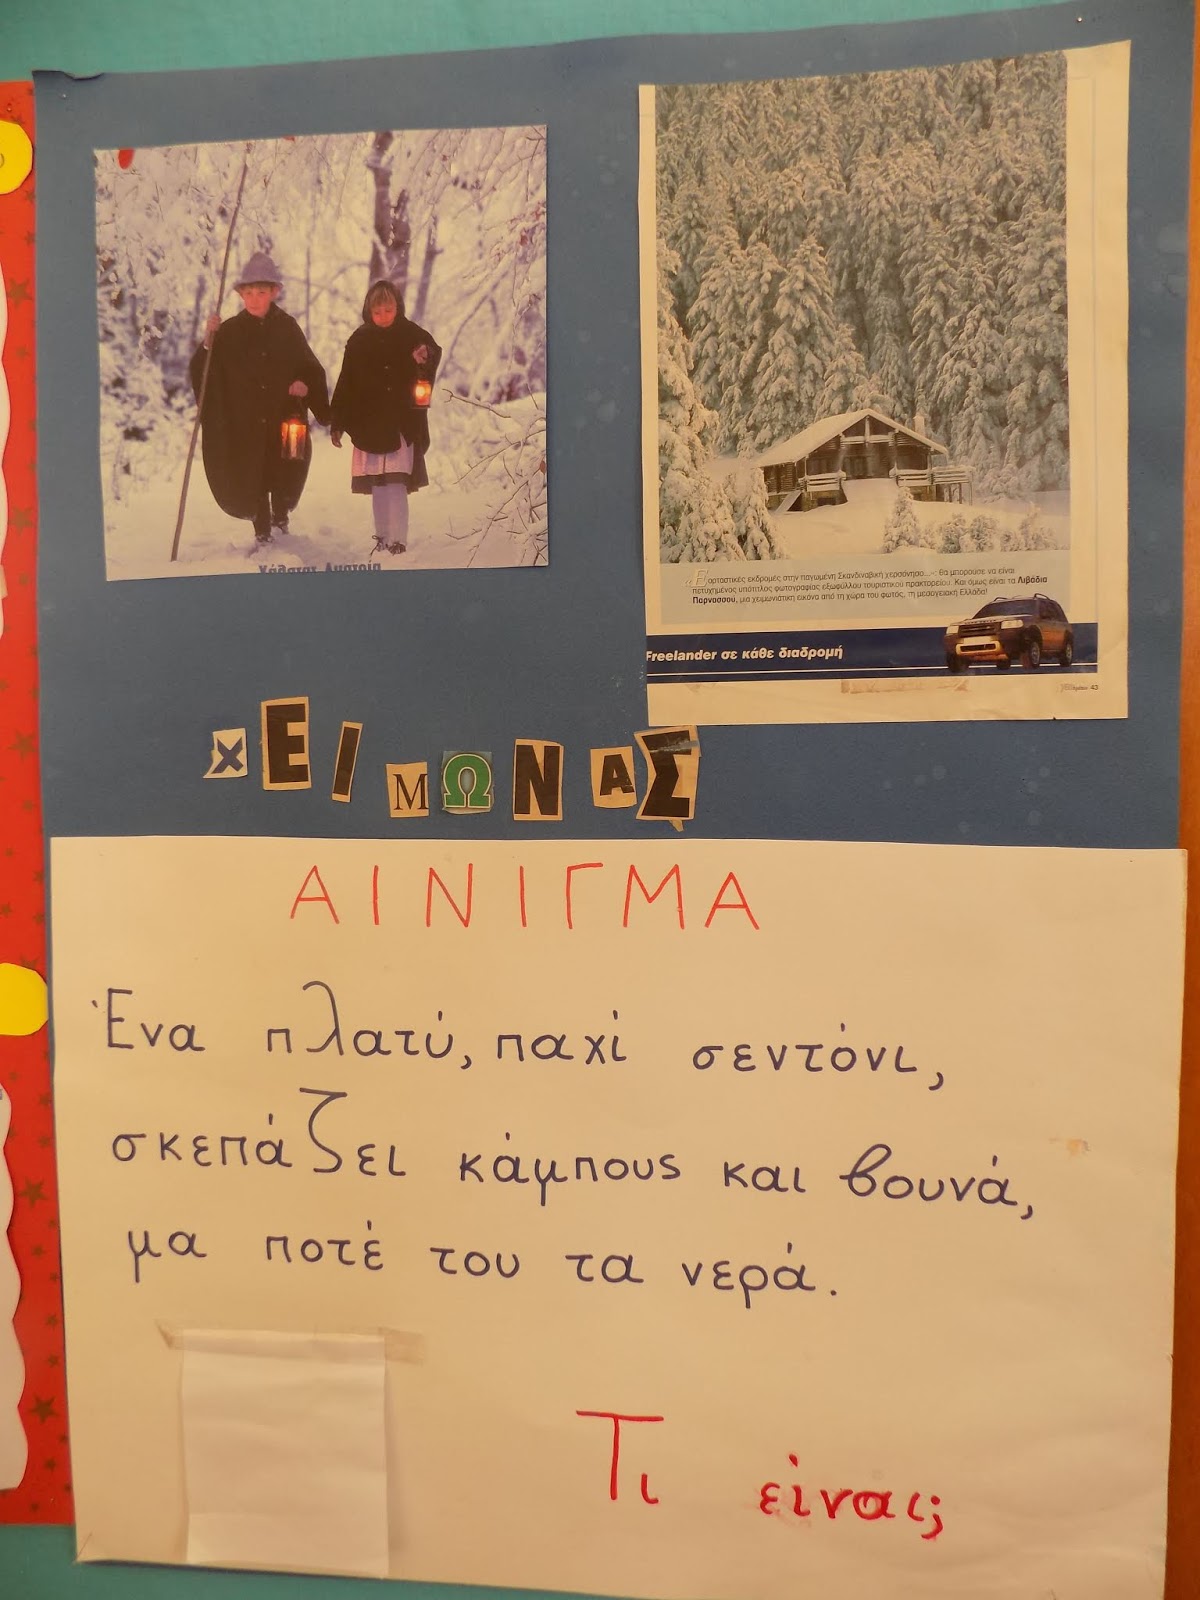 Χάλαντ Αμαρία
«Εορταστικές εκδρομές στην παγωμένη Σκανδιναβική χερσόνησο...»: θα μπορούσε να είναι
πετυχημένος υπότιτλος φωτογραφίας εξωφύλλου τουριστικού πρακτορείου. Και όμως είναι τα Λιβάδια
Παρνασσού, μια χειμωνιάτικη εικόνα από τη χώρα του φωτός, τη μεσογειακή Ελλάδα!
Freelander σε κάθε διαδρομή
43
ΧΕΙΜΩΝΑΣ
ΑΙΝΙΓΜΑ
Ένα πλατύ, παχί σεντόνι,
σκεπάζει κάμπους και βουνά,
μα ποτέ του τα νερά.
Τι είναι;